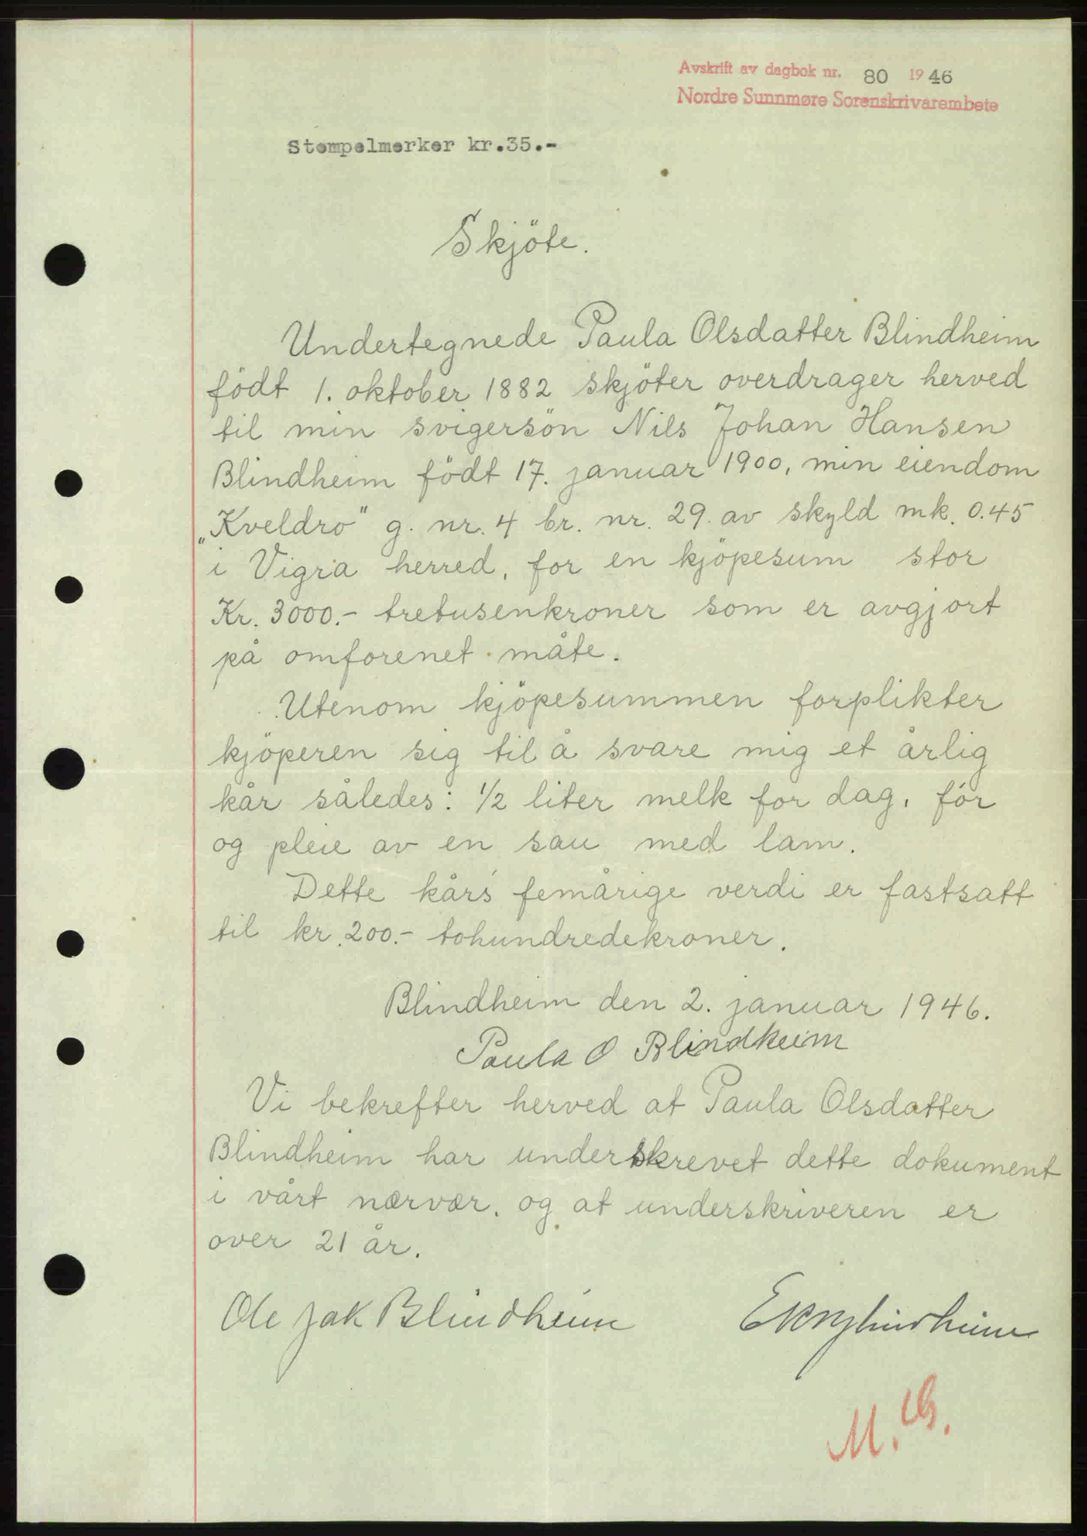 Avskrift av dagbok nr. 80 1946
Nordre Sunnmøre Sorenskrivarembete
Stempelmerker kr.35.-
Skjöte.
Undertegnede Paula Olsdatter Blindheim
födt 1. oktober 1882 skjöter overdrager herved
til min svigersön Nils Johan Hansen
Blindheim födt 17. januar 1900, min eiendom
„Kveldro" g. nr. 4 br. nr. 29. av skyld mk. 0.45
i Vigra herred, for en kjöpesum stor
Kr. 3000.- tretusenkroner som er avgjort
på omforenet måte.
Utenom kjöpesummen forplikter
kjöperen sig til å svare mig et årlig
kår således: 1/2 liter melk for dag, fór
og pleie av en sau med lam.
Dette kårs femårige verdi er fastsatt
til kr. 200.- tohundredekroner.
Blindheim den 2. januar 1946.
Paula O Blindheim
Vi bekrefter herved at Paula Olsdatter
Blindheim har underskrevet dette dokument
i vårt nærvær, og at underskriveren er
over 21 år.
Ole Jak Blindheim
M. B.